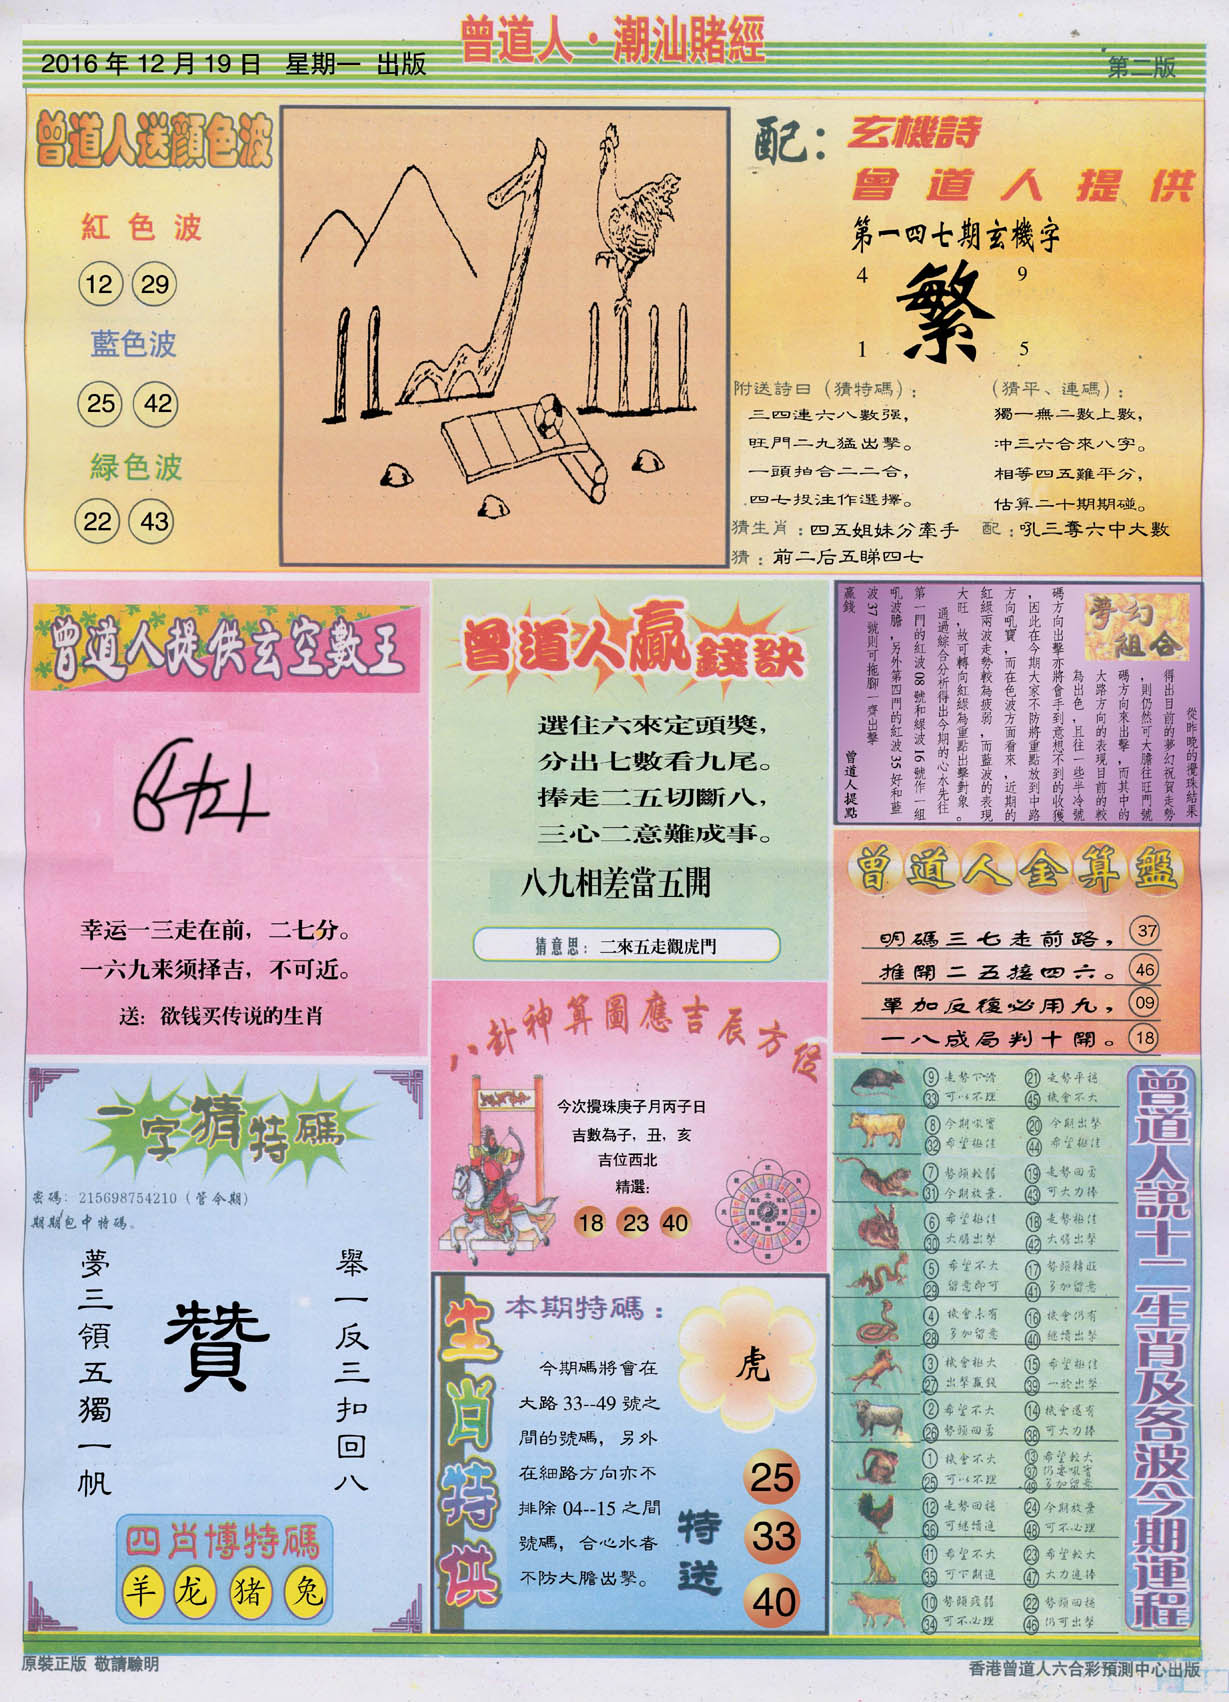 曾道人·潮汕賭經
2016年12月19日 星期一 出版
第二版
曾道人送顏色波
紅色波
12 29
藍色波
25 42
緑色波
22 43
配：玄機詩
曾道人提供
第一四七期玄機字
4 9
繁
1 5
附送詩曰（猜特碼）：
三四連六八數强，
旺門二九猛出擊。
一頭拍合二二合，
四七投注作選擇。
（猜平、連碼）：
獨一無二數上數，
冲三六合來八字。
相等四五難平分，
估算二十期期碰。
猜生肖：四五姐妹分牽手
配：吼三奪六中大數
猜：前二后五睇四七
曾道人提供玄空數王
幸运一三走在前，二七分。
一六九来须择吉，不可近。
送：欲钱买传说的生肖
曾道人贏錢訣
選住六來定頭獎，
分出七數看九尾。
捧走二五切斷八，
三心二意難成事。
八九相差當五開
猜意思：二來五走觀虎門
夢幻組合
從昨晚的攪珠結果
得出目前的夢幻祝賀走勢
，則仍然可大膽往旺門號
碼方向來出擊，而其中的
大路方向的表現目前的較
為出色，且往一些半冷號
碼方向出擊亦將會手到意想不到的收獲
，因此在今期大家不防將重點放到中路
方向吼寶，而在色波方面看來，近期的
紅綠兩波走勢較為疲弱，而藍波的表現
大旺，故可轉向紅綠為重點出擊對象。
通過綜合分析得出今期的心水先往
第一門的紅波08號和緑波16號作一組
吼波膽，另外第四門的紅波35好和藍
波37號則可拖腳一齊出擊
贏錢
曾道人提點
曾道人金算盤
明碼三七走前路， 37
推開二五接四六。 46
單加反復必用九， 09
一八成局判十開。 18
一字猜特碼
密碼：215698754210（管令期）
期期包中特碼。
舉一反三扣回八
贊
夢三領五獨一帆
四肖博特碼
羊 龙 猪 兔
八卦神算圖應吉辰方位
今次攪珠庚子月丙子日
吉數為子，丑，亥
吉位西北
精選：
18 23 40
生肖特供
本期特碼：
虎
今期碼將會在
大路33--49號之
間的號碼，另外
在細路方向亦不
排除04--15之間
號碼，合心水者
不防大膽出擊。
特送
25
33
40
曾道人説十二生肖及各波今期運程
⑨ 走勢下滑 ㉑ 走勢平穩
㉝ 可以不理 ㊺ 機會不大
⑧ 今期吼寶 ⑳ 今期出擊
㉜ 希望極佳 ㊹ 希望極佳
⑦ 勢頭較弱 ⑲ 走勢回勇
㉛ 今期放棄 ㊸ 可大力捧
⑥ 希望極佳 ⑱ 走勢極佳
㉚ 大膽出擊 ㊷ 大膽出擊
⑤ 希望不大 ⑰ 勢頭轉旺
㉙ 留意即可 ㊶ 多加留意
④ 機會未有 ⑯ 機會仍有
㉘ 多加留意 ㊵ 繼續出擊
③ 機會極大 ⑮ 希望極佳
㉗ 出擊贏錢 ㊴ 一於出擊
② 希望不大 ⑭ 機會還有
㉖ 勢頭回勇 ㊳ 可大力捧
① 機會不大 ⑬ 希望較大
㉕ 可以不理 ㊲ 仍要吼寶
㊾ 多加留意
⑫ 走勢回穩 ㉔ 今期放棄
㊱ 可繼續追 ㊽ 可不必理
⑪ 希望不大 ㉓ 希望較大
㉟ 可下期追 ㊼ 大力追捧
⑩ 勢頭疲弱 ㉒ 勢頭回穩
㉞ 可不必理 ㊻ 仍可出擊
原裝正版 敬請驗明
香港曾道人六合彩預測中心出版